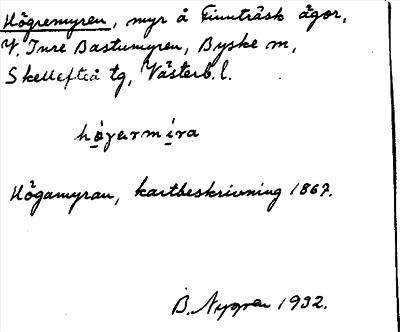 Högremyren, myr å Finnträsk ägor,
V. Inre Bastumyren, Byske sn,
Skellefteå tg, Västerb. l.
hö̱γərmi̱ra
Högamyran, kartbeskrivning 1867.
B. Nygren 1932.